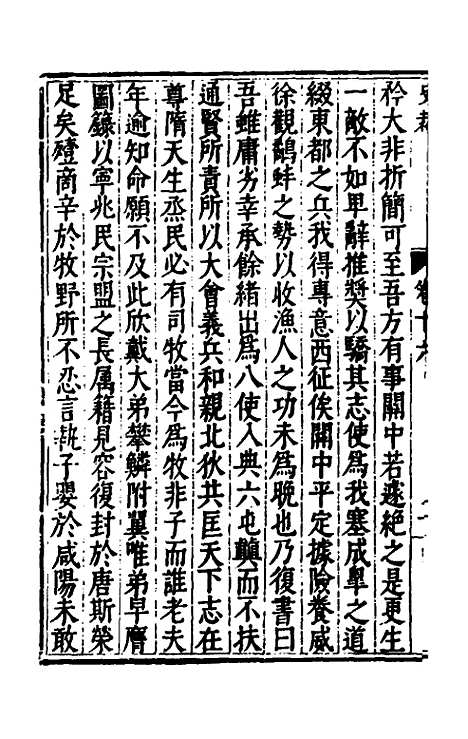 矜大非折簡可至吾方有事關中若遽絕之是更生
一敵不如卑辭推奬以驕其志使爲我塞成臯之道
綴東都之兵我得專意西征俟關中平定據險養威
徐觀鷸蚌之勢以收漁人之功未爲晚也乃復書曰
吾雖庸劣幸承餘緒出爲八使入典六屯顚而不扶
通賢所責所以大會義兵和親北狄共匡天下志在
尊隋天生烝民必有司牧當今爲牧非子而誰老夫
年逾知命願不及此欣戴大弟攀鱗附翼唯弟早膺
圖籙以寧兆民宗盟之長属籍見容復封於唐斯榮
足矣殪商辛於牧野所不忍言執子嬰於咸陽未敢